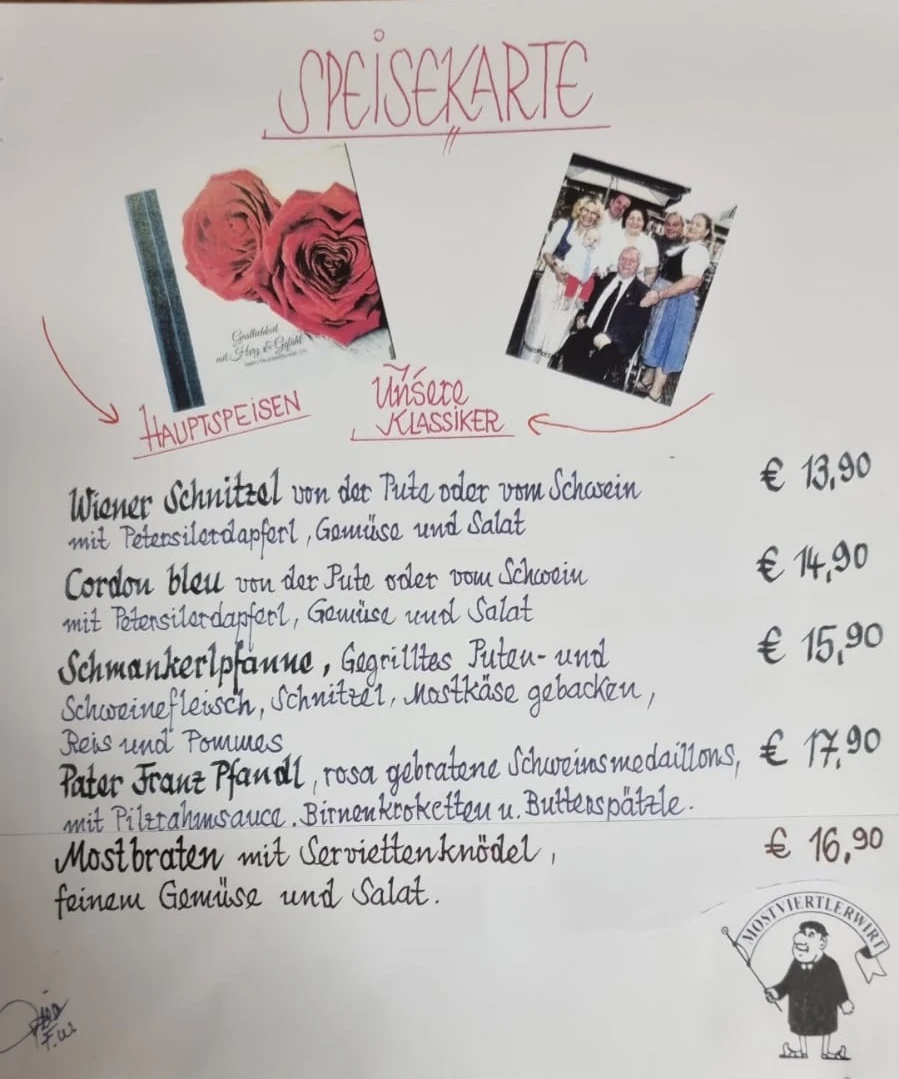 SPEISEKARTE
Gastlichkeit
mit Herz & Gefühl
HAUPTSPEISEN
Unsere
KLASSIKER
Wiener Schnitzel von der Pute oder vom Schwein € 13,90
mit Petersilerdapferl, Gemüse und Salat
Cordon bleu von der Pute oder vom Schwein € 14,90
mit Petersilerdapferl, Gemüse und Salat
Schmankerlpfanne, Gegrilltes Puten- und € 15,90
Schweinefleisch, Schnitzel, Mostkäse gebacken,
Reis und Pommes
Pater Franz Pfandl, rosa gebratene Schweinsmedaillons, € 17,90
mit Pilzrahmsauce. Birnenkroketten u. Butterspätzle.
Mostbraten mit Serviettenknödel, € 16,90
feinem Gemüse und Salat.
MOSTVIERTLERWIRT